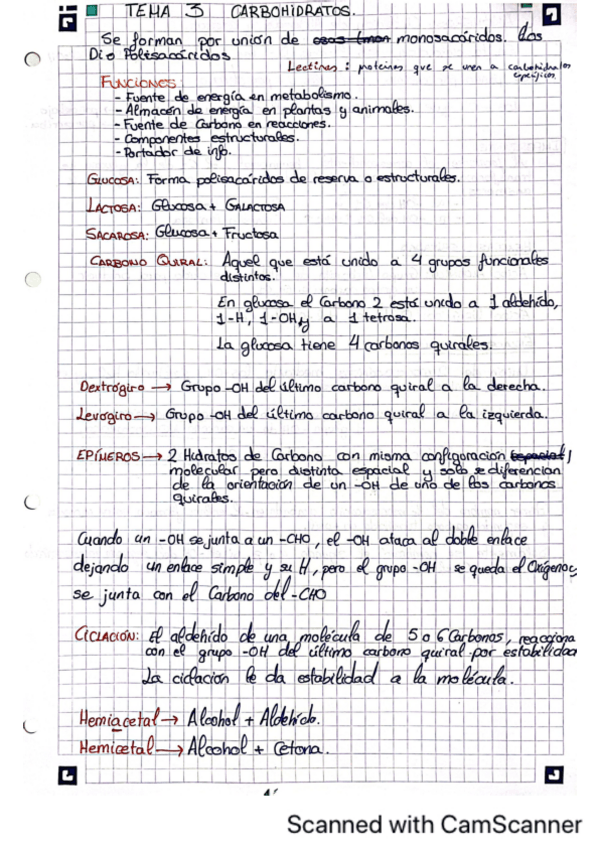 TEMA 3 CARBOHIDRATOS.
Se forman por unión de monosacáridos. Los
Di o Polisacáridos
Lectinas: proteínas que se unen a carbohidratos
específicos
FUNCIONES:
- Fuente de energía en metabolismo.
- Almacén de energía en plantas y animales.
- Fuente de Carbono en reacciones.
- Componentes estructurales.
- Portador de info.
GLUCOSA: Forma polisacáridos de reserva o estructurales.
LACTOSA: Glucosa + GALACTOSA
SACAROSA: Glucosa + Fructosa
CARBONO QUIRAL: Aquel que está unido a 4 grupos funcionales
distintos.
En glucosa el Carbono 2 está unido a 1 aldehído,
1-H, 1-OH y a 1 tetrosa.
La glucosa tiene 4 carbonos quirales.
Dextrógiro → Grupo -OH del último carbono quiral a la derecha.
Levógiro → Grupo -OH del último carbono quiral a la izquierda.
EPÍMEROS → 2 Hidratos de Carbono con misma configuración
molecular pero distinta espacial y solo se diferencian
de la orientación de un -OH de uno de los carbonos
quirales.
Cuando un -OH se junta a un -CHO, el -OH ataca al doble enlace
dejando un enlace simple y su H, pero el grupo -OH se queda el Oxígeno y
se junta con el Carbono del -CHO
CICLACIÓN: El aldehído de una molécula de 5 o 6 Carbonos, reacciona
con el grupo -OH del último carbono quiral por estabilidad
La ciclación le da estabilidad a la molécula.
Hemiacetal → Alcohol + Aldehído.
Hemicetal → Alcohol + Cetona.
Scanned with CamScanner